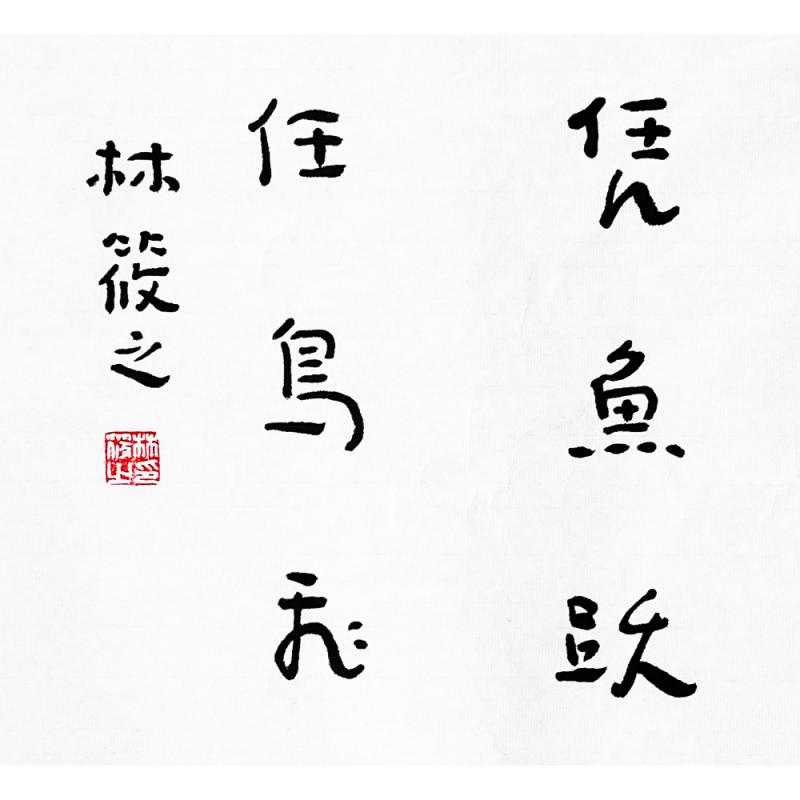 凭魚跃
任鳥飛
林筱之
林筱之印